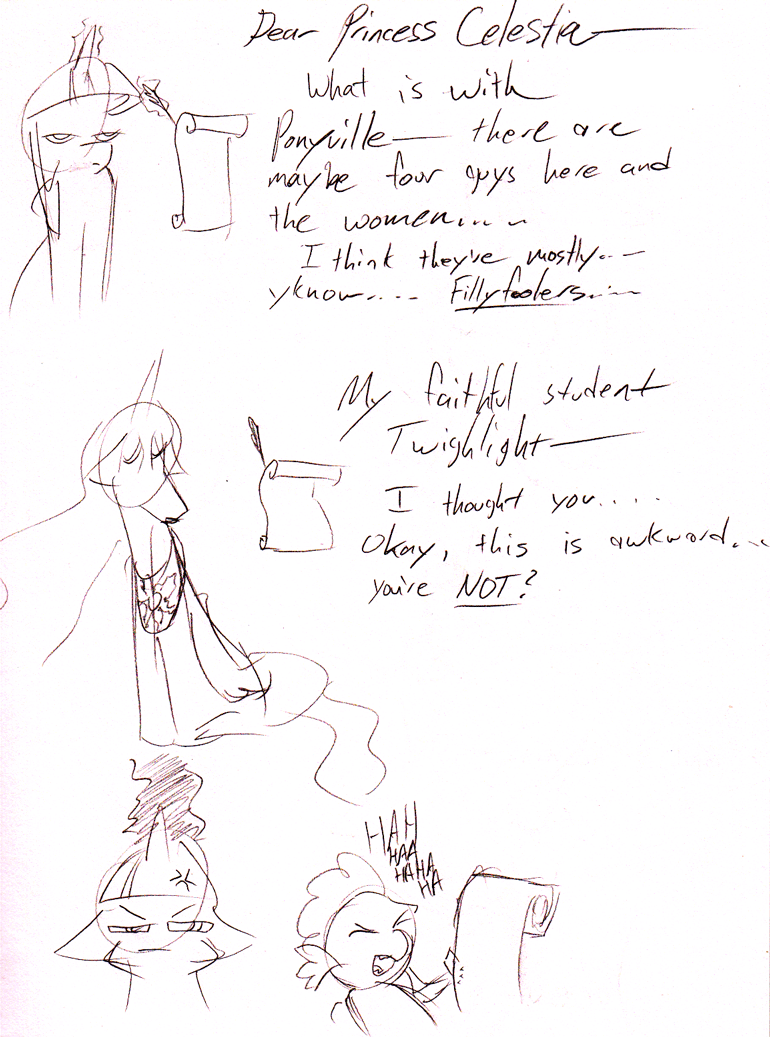 Dear Princess Celestia—
What is with
Ponyville— there are
maybe four guys here and
the women....
I think they've mostly...
yknow.... Fillyfoolers....
My faithful student
Twighlight—
I thought you....
Okay, this is awkward...
you're NOT?
HAH
HAA
HAHA
HA